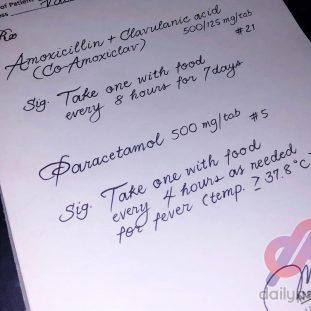 of Patient
Rx
Amoxicillin + Clavulanic acid
(Co-Amoxiclav) 500/125 mg/tab
#21
Sig. Take one with food
every 8 hours for 7 days
Paracetamol 500 mg/tab #5
Sig. Take one with food
every 4 hours as needed
for fever (temp. ≥ 37.8°C